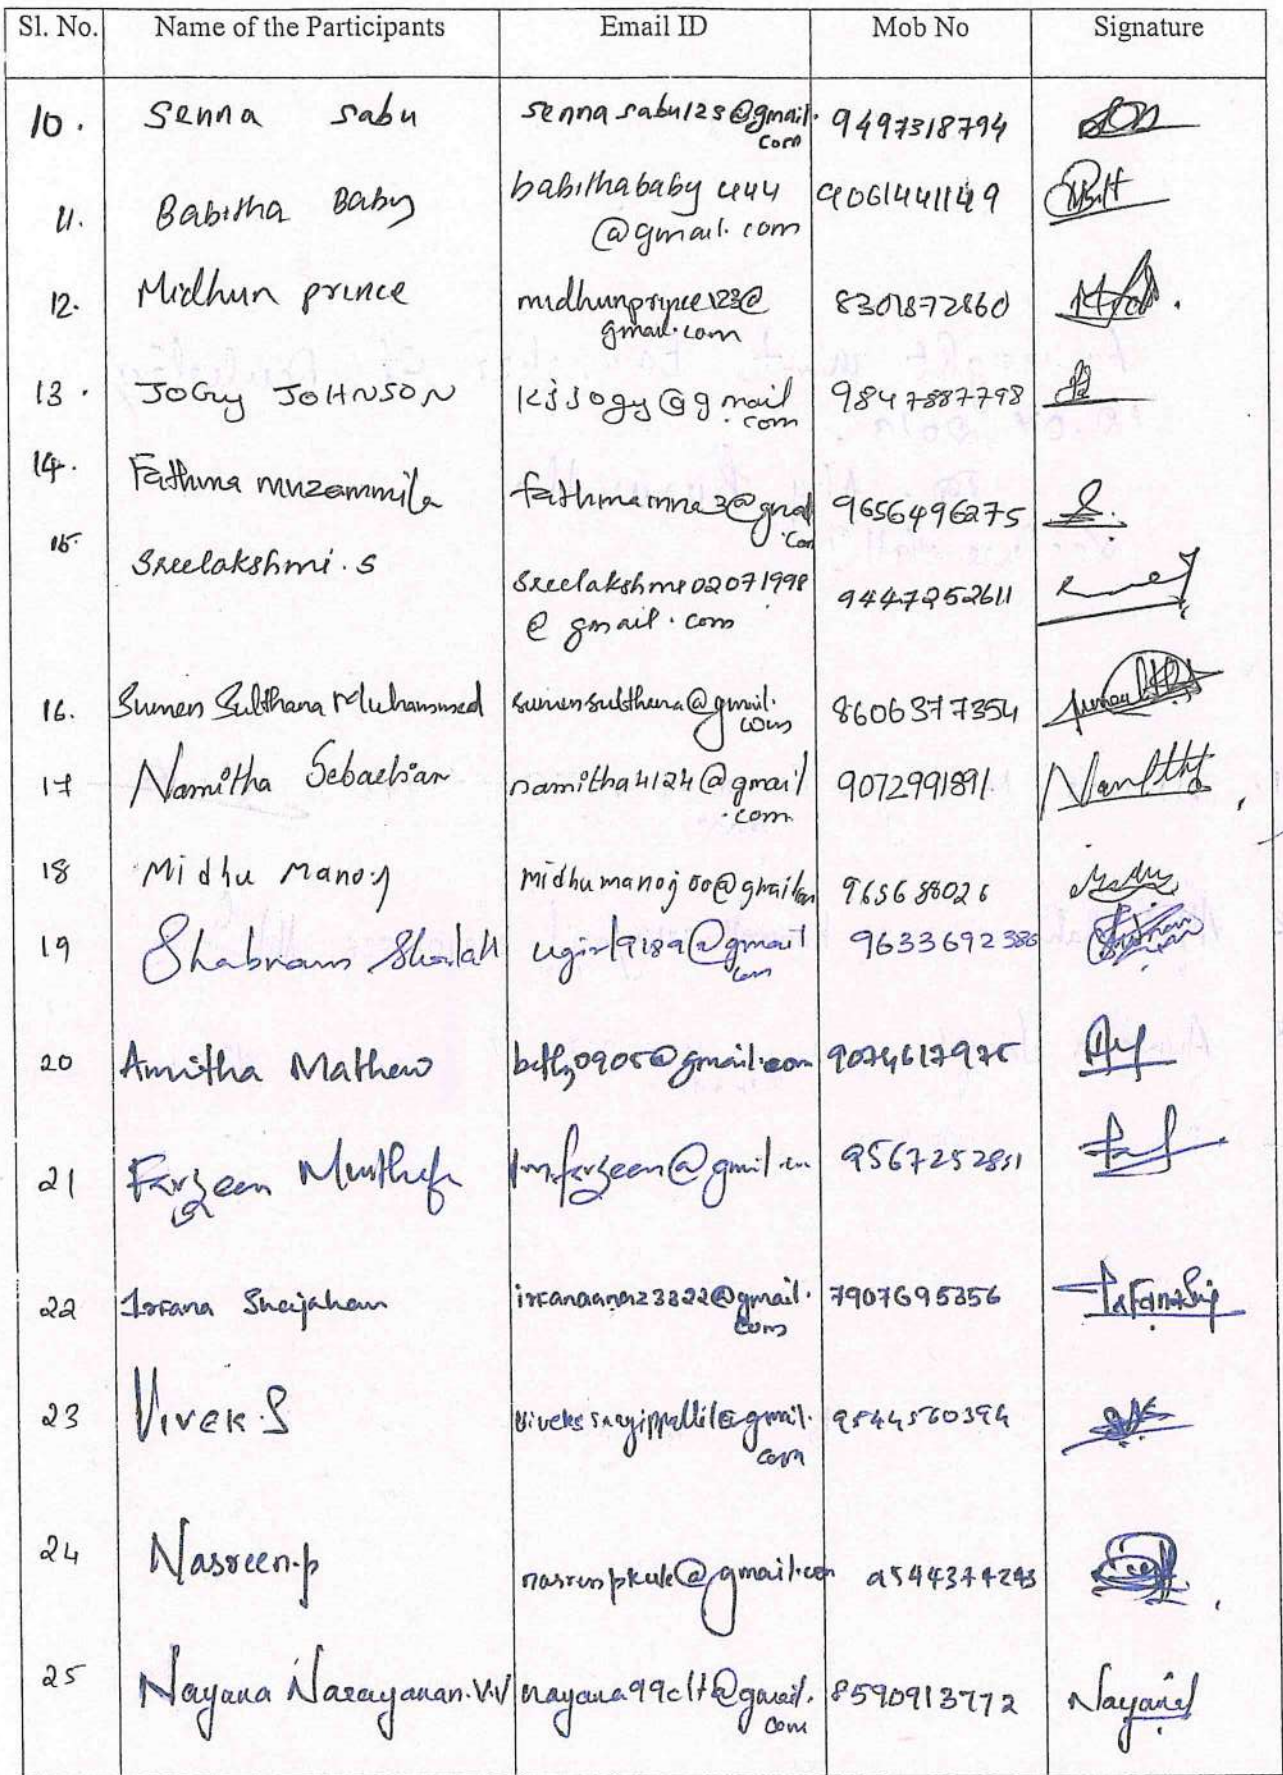 Sl. No. Name of the Participants Email ID Mob No Signature
10. Senna Sabu sennasabu123@gmail.com 9497318794
11. Babitha Baby babithababy444@gmail.com 9061441149
12. Midhun prince midhunprince123@gmail.com 8301872860
13. JOGY JOHNSON kjjogy@gmail.com 9847887798
14. Fathima muzammila 9656496275
15. Sreelakshmi.S sreelakshmi02071998@gmail.com 9447252611
16. Sumen Sulthana Muhammed sumensulthana@gmail.com 8606377354
17 Namitha Sebastian namitha4124@gmail.com 9072991891 Namitha
18 Midhu Manoj midhumanoj00@gmail.com 965688026
19 Shabnam 9633692386
20 Amitha Mathew betty0905@gmail.com 9074617975
21 Farzeen 9567252851
22 Irfana Shajahan 7907695356
23 Vivek.S 9544560394
24 Nasreen.p 9544374293
25 Nayana Narayanan.V.V nayana99clt@gmail.com 8590913772 Nayana